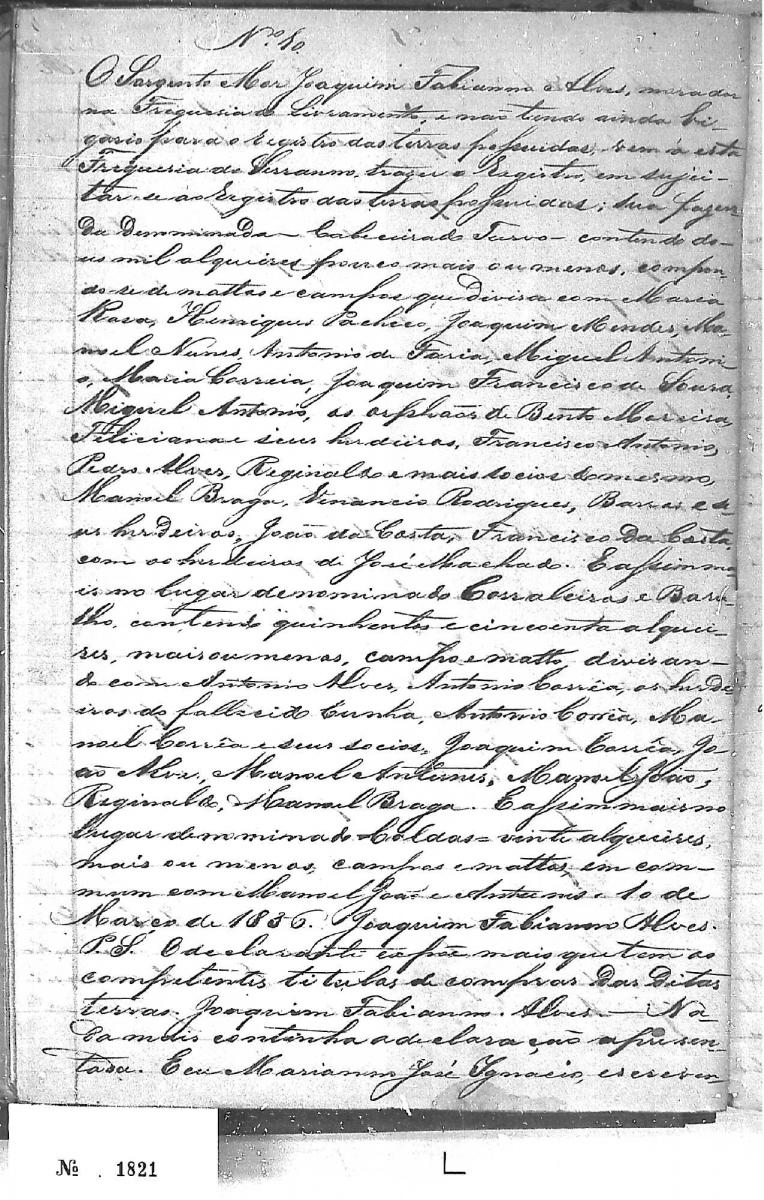 Nº 80.
O Sargento Mor Joaquim Fabianno Alves, morador
na Freguesia do Livramento, e não tendo ainda Vi-
gario para o registro das terras possuidas, vem a esta
Freguesia do Serranno, trazer o Registro, em sujei-
tar-se ao Registro das terras possuidas; sua fazen
da denominada - Cabeceira do Turvo - contendo do-
us mil alqueires pouco mais ou menos, compon-
do se de mattos e campos que divisa com Maria
Rosa, Henriques Pacheco, Joaquim Mendes, Ma-
noel Nunes, Antonio de Faria, Miguel Antoni-
o, Maria Correia, Joaquim Francisco de Souza,
Miguel Antonio, os orphãos de Bento Moreira,
Feliciana e seus herdeiros, Francisco Antonio,
Pedro Alves, Reginaldo e mais socios do mesmo,
Manoel Braga, Venancio Rodrigues, Barros e se-
us herdeiros, João da Costa, Francisco da Costa,
com os herdeiros de José Machado. E assim ma
is no lugar denominado Corraleiros e
contendo quinhentos e cincoenta alquei-
res, mais ou menos, campo e matto, divisan-
do com Antonio Alves, Antonio Corrêa, os herde
iros do fallecido Cunha, Antonio Corrêa, Ma-
noel Corrêa e seus socios, Joaquim Corrêa, Jo-
ão Alves, Manoel Antunes, Manoel João,
Reginaldo, Manoel Braga. E assim mais no
lugar denominado = Caldas = vinte alqueires,
mais ou menos, campos e mattos, em com-
mum com Manoel João e Antunes. 10 de
Março de 1856. Joaquim Fabianno Alves.
P.S. O declarante expõe mais que tem os
competentes titulos de compras das ditas
terras. Joaquim Fabianno. Alves. — Na-
da mais continha a declaração apresen-
tada. E eu Marianno José Ignacio, escreven
Nº . 1821